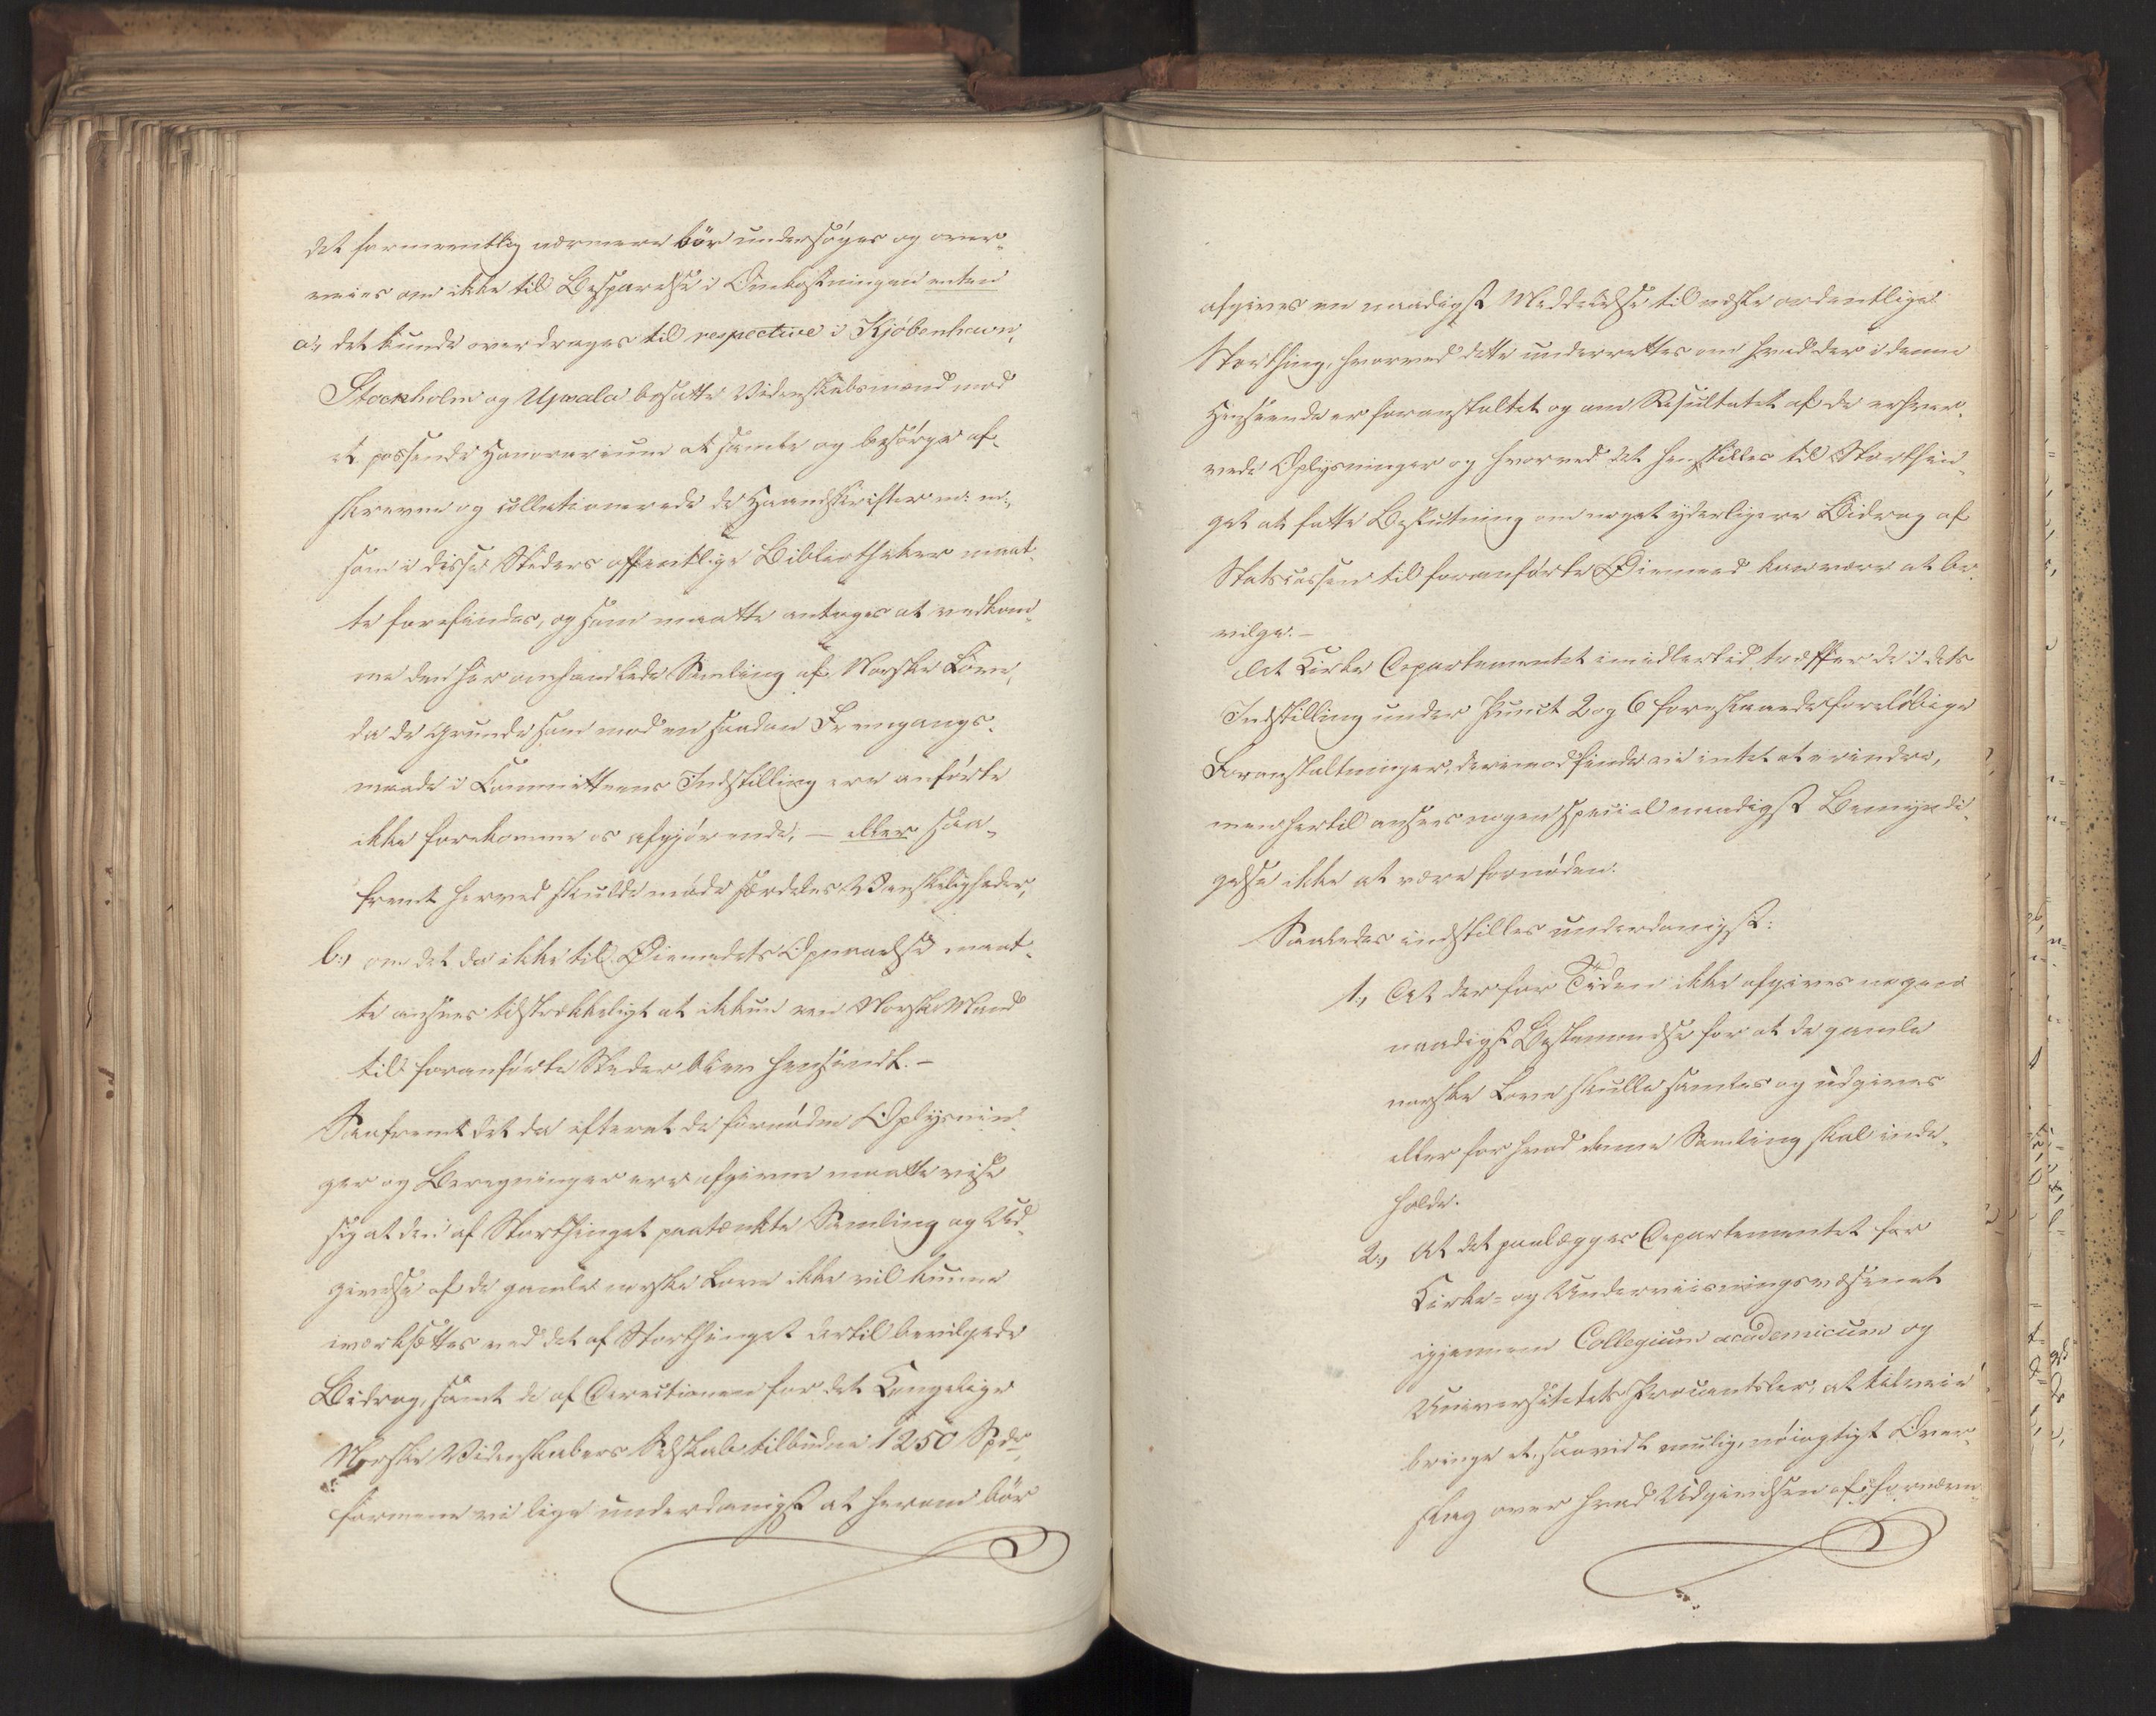 det formentlig nærmere bör undersöges og over-
veies om ikke til Besparelse i Omkostningen enten
a., det kunde overdrages til respective i Kjöbenhavn,
Stockholm og Upsala bosatte Videnskabsmænd mod
et passende Honorarium at samle og besörge af-
skrevne og collationerede de Haandskrifter m: m:,
som i disse Steders offentlige Bibliotheker maat-
te forefindes, og som maatte antages at vedkom-
me den her omhandlede Samling af Norske Love,
da de Grunde som mod en saadan Fremgangs-
maade i Committeens Indstilling ere anförte
ikke forekomme os afgjörende, — eller saa-
fremt herved skulde möde særdeles Vanskeligheder,
b., om det da ikke til Öiemedets Opnaaelse maat-
te ansees tilstrækkeligt at ikkun een Norsk Mand
til foranförte Steder blev hensendt. –
Saafremt det da efterat de fornödne Oplysnin-
ger og Beregninger ere afgivne maatte vise
sig at den af Storthinget paatænkte Samling og Ud-
givelse af de gamle norske Love ikke vil kunne
iværksættes ved det af Storthinget dertil bevilgede
Bidrag, samt de af Directionen for det Kongelige
Norske Videnskabers Selskab tilbudne 1250 Spdr,
formene vi lige underdanigst at herom bör
afgives en naadigst Meddelelse til næste ordentlige
Storthing, hvorved dette underrettes om hvad der i denne
Henseende er foranstaltet og om Resultatet af de erhver-
vede Oplysninger og hvorved det henstilles til Storthin-
get at fatte Beslutning om noget yderligere Bidrag af
Statscassen til foranförte Öiemed kan være at be-
vilge. –
At Kirke Departementet imidlertid træffer de i dets
Indstilling under Punct 2 og 6 foreslaaede forelöbige
Foranstaltninger, derimod finde vi intet at erindre,
men hertil ansees nogen special naadigst Bemyndi-
gelse ikke at være fornöden.
Saaledes indstilles underdanigst:
1., At der for Tiden ikke afgives nogen
naadigst Bestemmelse for at de gamle
norske Love skulle samles og udgives
eller for hvad denne Samling skal inde-
holde.
2., At det paalægges Departementet for
Kirke- og Underviisningsvæsenet
igjennem Collegium academicum og
Universitetets Procantsler, at tilveie-
bringe et, saavidt mulig, nöiagtigt Over-
slag over hvad Udgivelsen af fornævn-